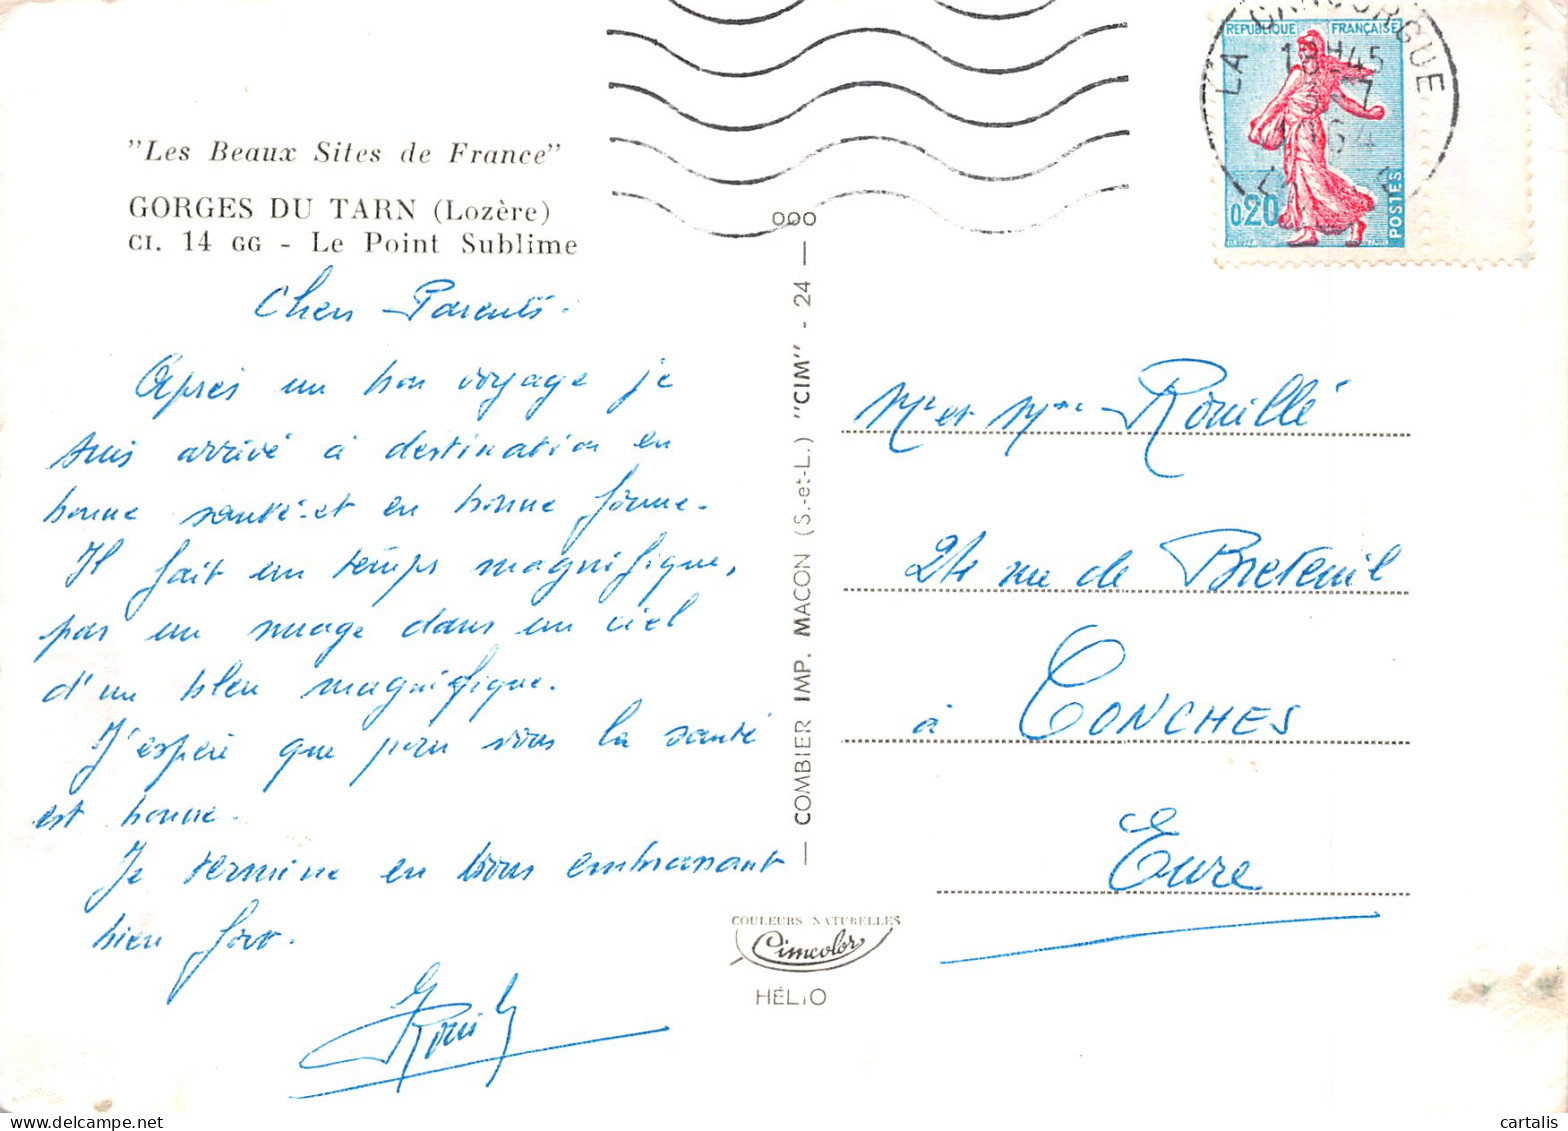 "Les Beaux Sites de France"
GORGES DU TARN (Lozère)
CI. 14 GG - Le Point Sublime
Chers Parents.
Après un bon voyage je
suis arrivé à destination en
bonne santé et en bonne forme.
Il fait un temps magnifique,
pas un nuage dans un ciel
d'un bleu magnifique.
J'espère que pour vous la santé
est bonne.
Je termine en vous embrassant
bien fort.
RÉPUBLIQUE FRANÇAISE
0,20
POSTES
LA CANOURGUE
18H45
3-7
1964
000
COMBIER IMP. MACON (S.-et-L.) "CIM" - 24
Mr et Mme Rouillé
24 rue de Breteuil
à CONCHES
Eure
COULEURS NATURELLES
Cimcolor
HÉLIO
cartalis